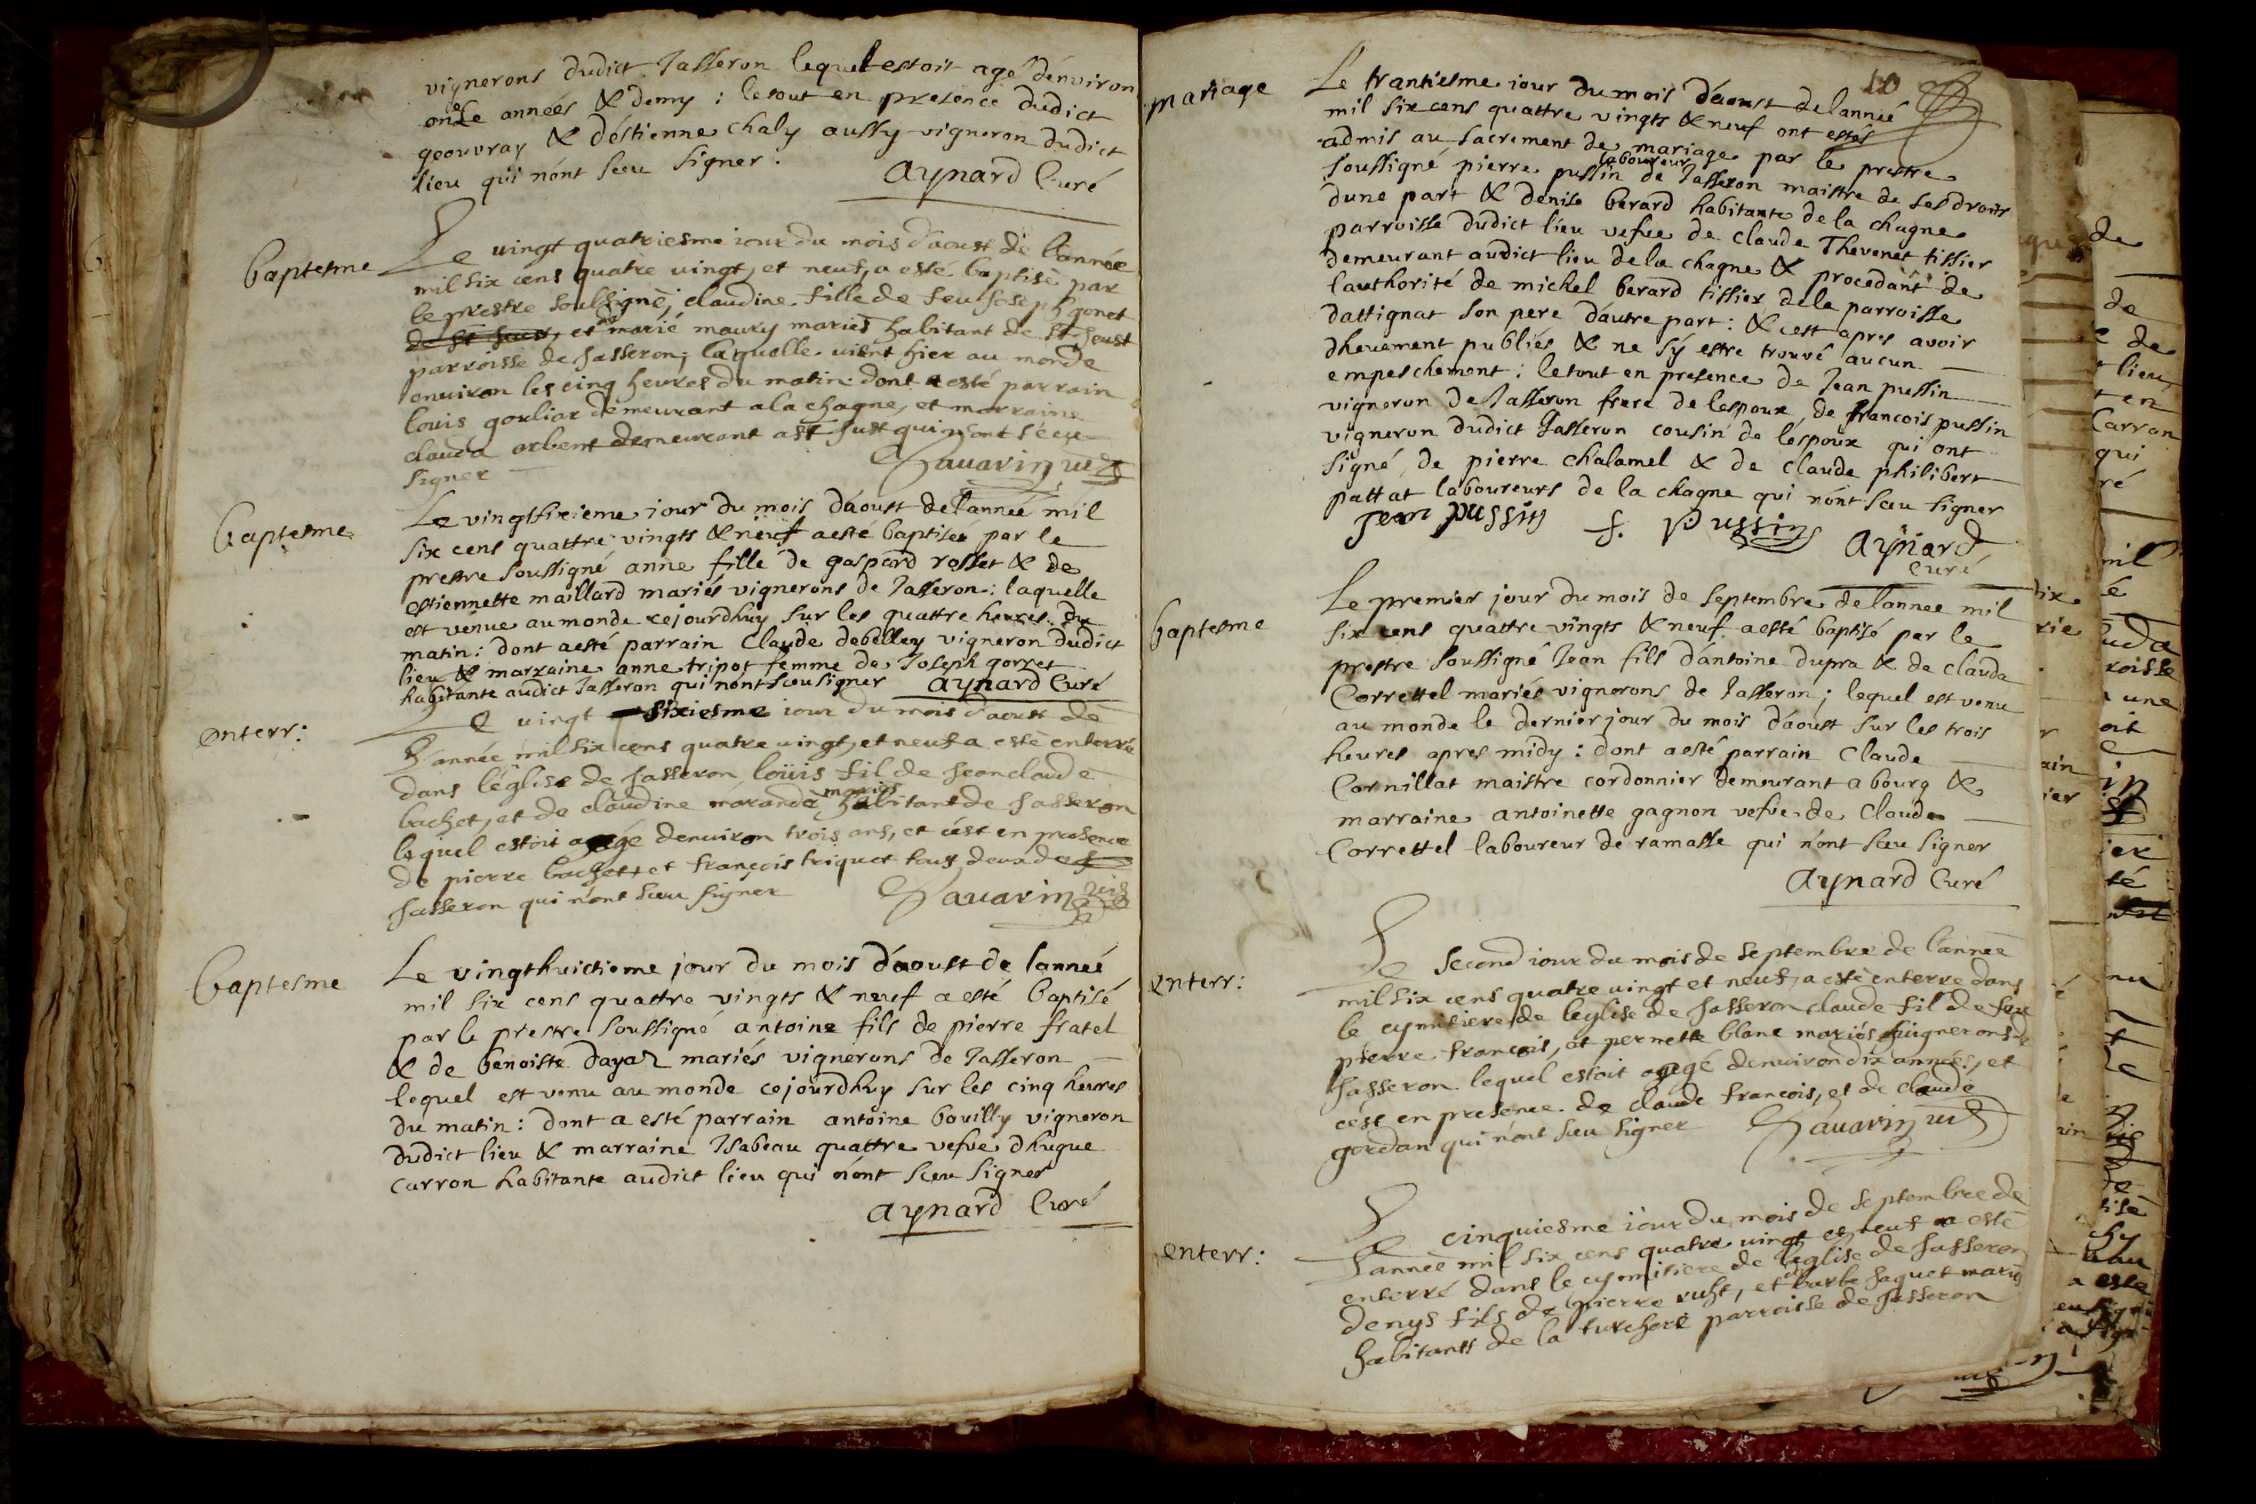 vignerons dudict Jasseron lequel estoit agé d'environ
onse années & demy : le tout en presence dudict
geouvray & d'éstienne chaly aussy vigneron dudict
lieu qui n'ont sceu signer .
Aynard Curé
baptesme
Le vingt quatriesme iour du mois d'aoust de l'année
mil six cens quatre vingt, et neuf, a esté baptisé par
le prestre soulsigné, claudine fille de feu Joseph gonet
et marié maury mariés habitant de st Joust
parroisse de Jasseron, laquelle vient hier au monde
enuiron les cinq heures du matin dont a esté parrain
louis gouliar demeurant a la chagne, et marraine
clauda arbent demeurant a st Just qui n'ont sceu
signer
Sauarin vic
baptesme
Le vingtsixieme iour du mois d'aoust de l'année mil
six cens quattre vingts & neuf a esté baptisée par le
prestre soussigné anne fille de gaspard rosset & de
estiennette maillard mariés vignerons de Jasseron : laquelle
est venue au monde cejourdhuy sur les quattre heures du
matin : dont a esté parrain Claude debelley vigneron dudict
lieu & marraine anne tripot femme de Joseph gorret
habitante audict Jasseron qui n'ont sceu signer Aynard Curé
enterr :
Le vingt sixiesme iour du mois d'aoust de
L'année mil six cens quatre vingt, et neuf a esté enterré
dans l'église de Jasseron loüis fil de Jean claude
bachet, et de claudine morandà mariés habitant de Jasseron
lequel estoit agé denuiron trois ans, et c'est en presence
de pierre bachet, et françois triquet tous deux de
Jasseron qui n'ont sceu signer
Sauarin vic
baptesme
Le vingthuictieme jour du mois d'aoust de l'année
mil six cens quattre vingts & neuf a esté baptisé
par le prestre soussigné antoine fils de pierre fratel
& de benoiste dayaz mariés vignerons de Jasseron
lequel est venu au monde cejourdhuy sur les cinq heures
du matin : dont a esté parrain antoine bouilly vigneron
dudict lieu & marraine Isabeau quattre vefve d'hugue
carron habitante audict lieu qui n'ont sceu signer
Aynard Curé
10
mariage
Le trantiesme iour du mois d'aoust de l'année
mil six cens quattre vingts & neuf ont estés
admis au sacrement de mariage par le prestre
soussigné pierre pussin laboureur de Jasseron maistre de ses droits
d'une part & denise berard habitante de la chagne
parroisse dudict lieu vefve de claude Thevenet tissier
demeurant audict lieu de la chagne & procedant de
l'authorité de michel berard tissier de la parroisse
d'attignat son pere d'autre part : & c'est apres avoir
dheuement publiés & ne s'y estre trouvé aucun
empeschement : le tout en presence de Jean pussin
vigneron de Jasseron frere de lespoux, de francois pussin
vigneron dudict Jasseron cousin de l'espoux qui ont
signé, de pierre chalamel & de claude philibert
pattat laboureurs de la chagne qui n'ont sceu signer
Jean pussin f. pussin Aynard
Curé
baptesme
Le premier jour du mois de septembre de l'annee mil
six cens quattre vingts & neuf a esté baptisé par le
prestre soussigné Jean fils d'antoine dupra & de clauda
Correttel mariés vignerons de Jasseron ; lequel est venu
au monde le dernier jour du mois d'aoust sur les trois
heures apres midy : dont a esté parrain Claude
Cornillat maistre cordonnier demeurant a bourg &
marraine antoinette gagnon vefve de Claude
Correttel laboureur de ramasse qui n'ont sceu signer
Aynard Curé
enterr :
Le second iour du mois de septembre de l'année
mil six cens quatre vingt et neuf, a esté enterré dans
le cymitiere de leglise de Jasseron claude fil de feu
pierre françois, et pernette blanc mariés vignerons de
Jasseron lequel estoit agé denuiron dix années, et
c'ést en presence de claude francois, et de claude
gordan qui n'ont sceu signer
Sauarin vic
enterr :
Le cinquiesme iour du mois de septembre de
L'année mil six cens quatre vingt et neuf a esté
enterré dans le cymitiere de leglise de Jasseron
denys fils de pierre ruht, et barbe Jaquet mariés
habitants de la turchere parroisse de Jasseron